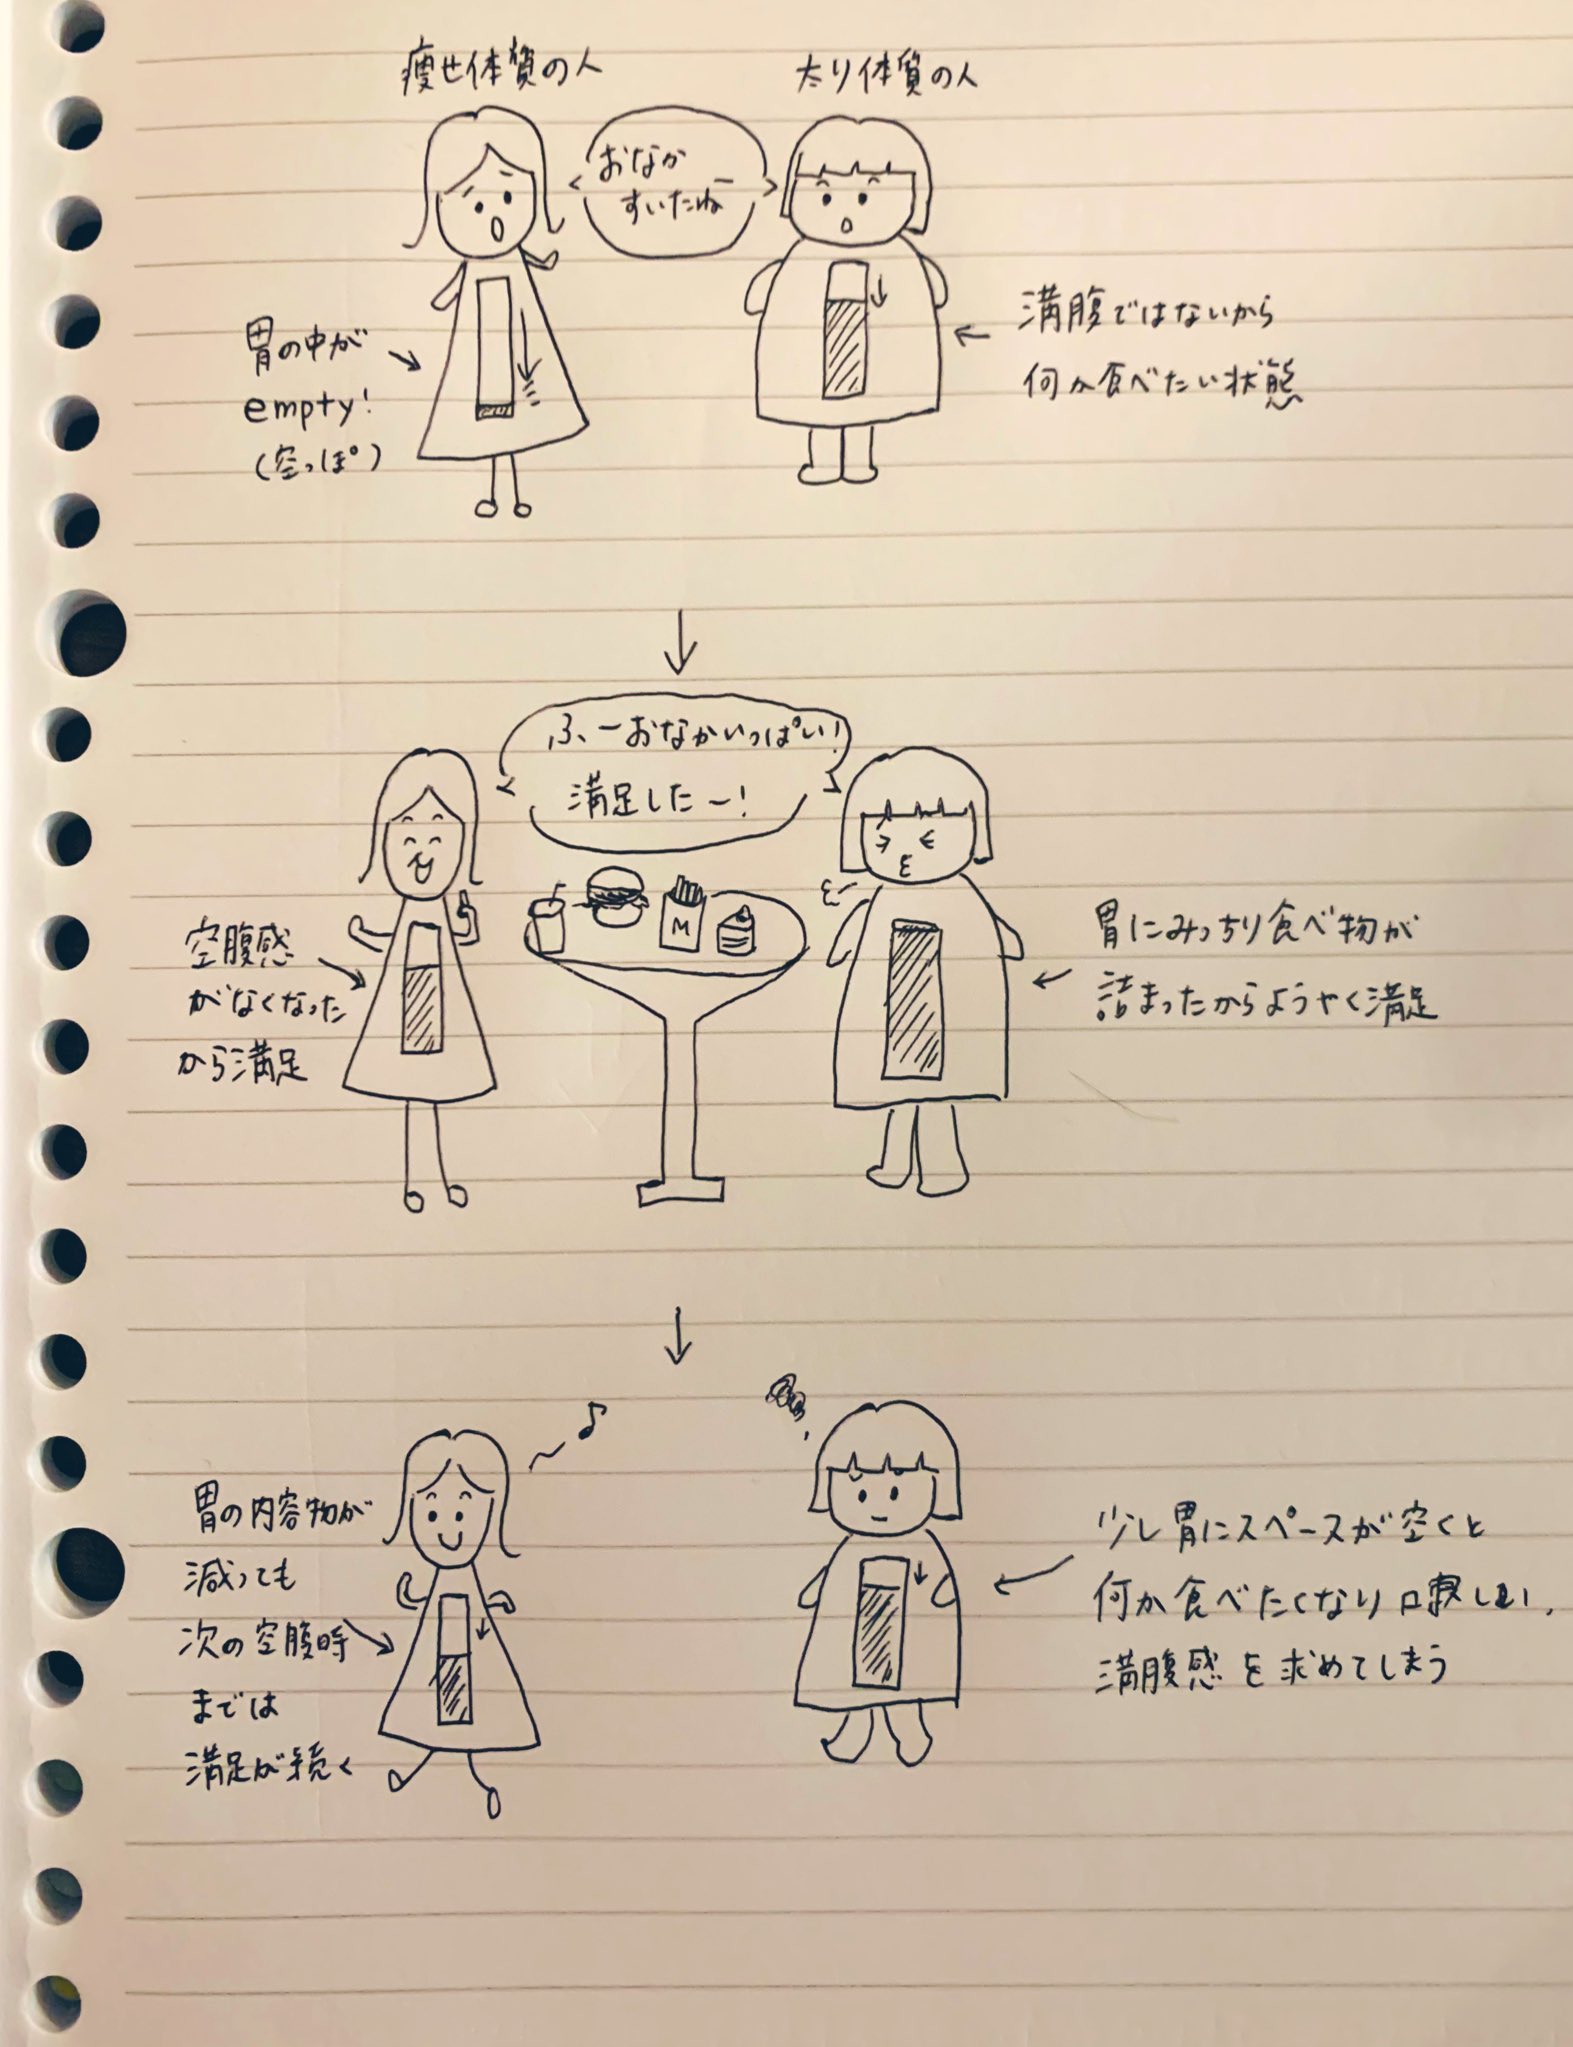 痩せ体質の人
太り体質の人
おなか
すいたねー
胃の中が
empty!
(空っぽ)
満腹ではないから
何か食べたい状態
ふーおなかいっぱい!
満足したー!
M
空腹感
がなくなった
から満足
胃にみっちり食べ物が
詰まったからようやく満足
胃の内容物が
減っても
次の空腹時
までは
満足が続く
少し胃にスペースが空くと
何か食べたくなり口寂しい、
満腹感を求めてしまう